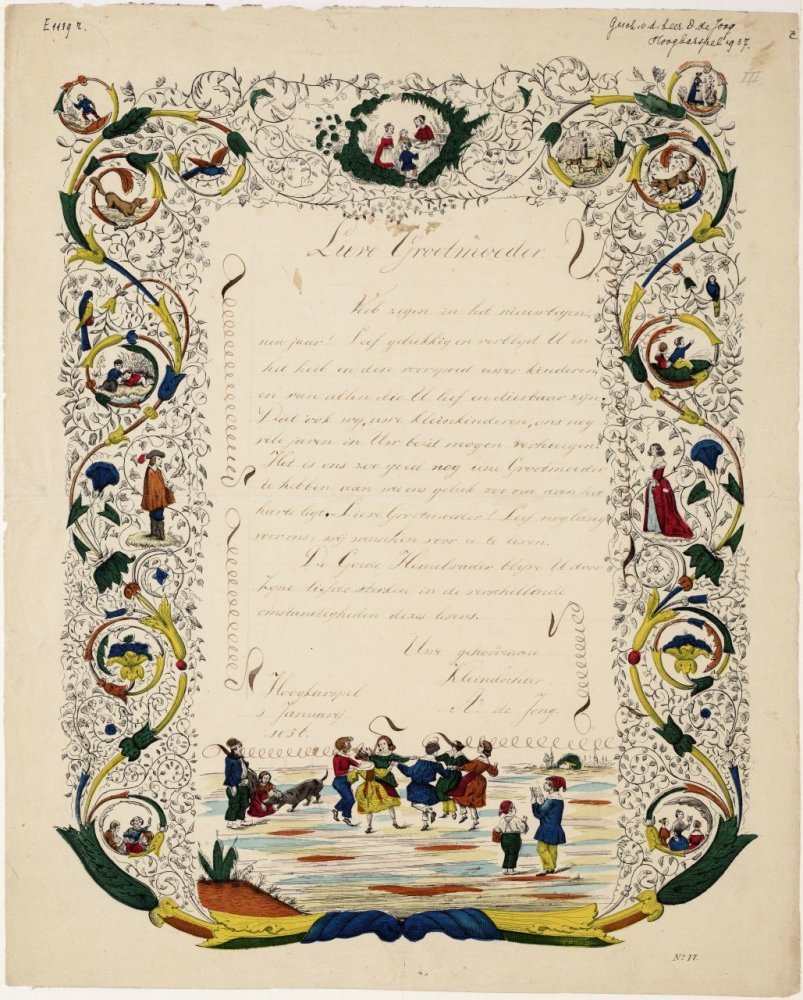 E1139 r.
Gesch. v. d. Heer D. de Jong
Hoogkarspel 1937.
III
Lieve Grootmoeder
Veel zegen in het nieuwbegon-
nen jaar! Leef gelukkig en verblijd U in
het heil en den voorspoed uwer kinderen,
en van allen die U lief en dierbaar zijn.
Dat ook wij, uwe kleinkinderen, ons nog
vele jaren in Uw bezit mogen verheugen.
Het is ons zoo goed nog eene Grootmoeder
te hebben aan wie ons geluk zoo na aan het
harte ligt. Lieve Grootmoeder! Leef nog lang
voor ons; wij wenschen voor u te leven.
De Goede Hemelvader blijve U door
Zijne liefde sterken in de verschillende
omstandigheden dezes levens.
Uwe gehoorzame
Kleindochter
Hoogkarspel
1 Januarij
A. de Jong.
Nº 17.